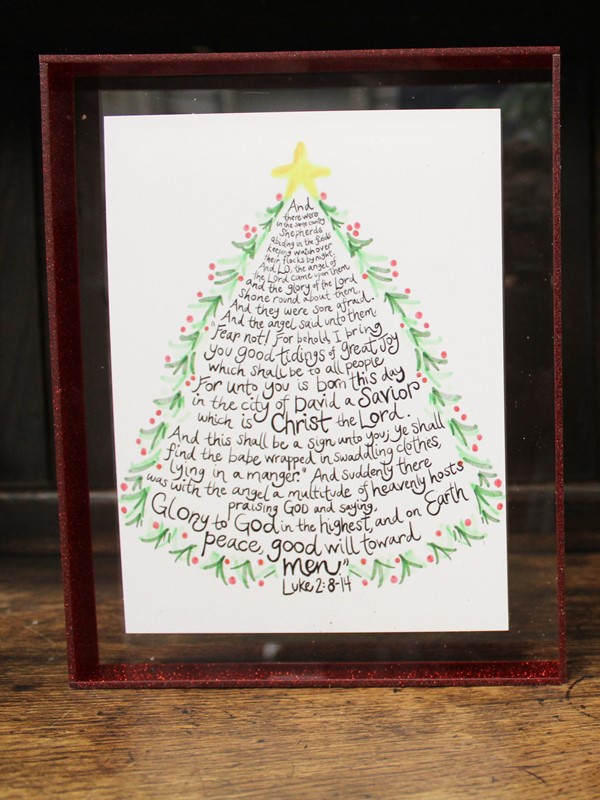 And
there were
in the same country
Shepherds
abiding in the fields
keeping watch over
their flocks by night.
And LO, the angel of
the Lord came upon them
and the glory of the Lord
shone round about them,
And they were sore afraid.
And the angel said unto them
"Fear not! For behold, I bring
you good tidings of great joy
which shall be to all people
For unto you is born this day
in the city of David a Savior
which is Christ the Lord.
And this shall be a sign unto you; ye shall
find the babe wrapped in swaddling clothes,
lying in a manger." And suddenly there
was with the angel a multitude of heavenly hosts
praising GOD and saying,
Glory to God in the highest, and on Earth
peace, good will toward
men"
Luke 2:8-14